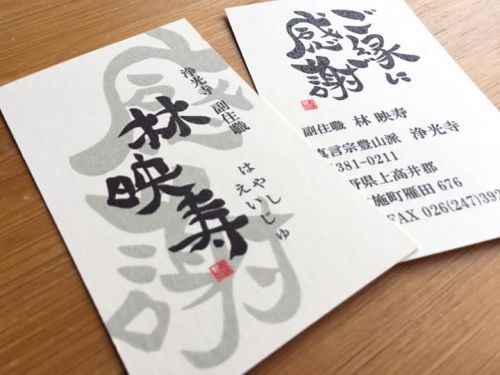 感謝
浄光寺 副住職
林映寿
はやし
えいじゅ
ご縁に
感謝
副住職 林 映寿
真言宗豊山派 浄光寺
381-0211
野県上高井郡
施町雁田 676
FAX 026(247)392